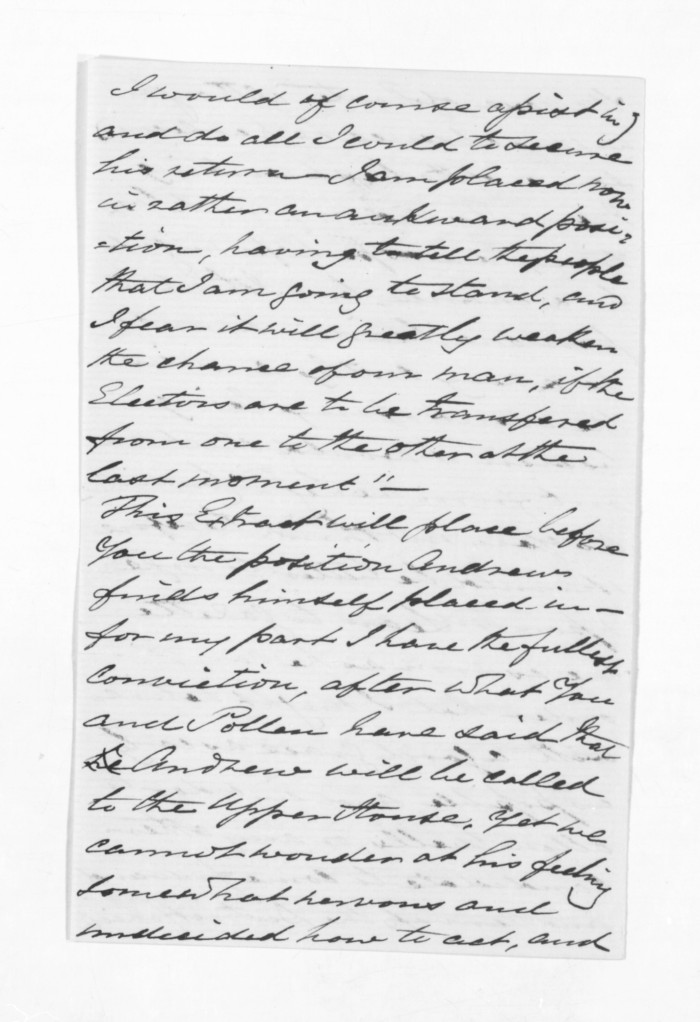 I would of course assist in
and do all I could to secure
his return - I am placed now
in rather an awkward posi=
=tion, having to tell the people
that I am going to stand, and
I fear it will greatly weaken
the chance of our man, if the
Electors are to be transfered
from one to the other at the
last moment" -
This Extract will place before
You the position Andrew
finds himself placed in -
for my part I have the fullest
conviction, after what You
and Pollen have said that
Andrew will be called
to the Upper House, Yet we
cannot wonder at his feeling
somewhat nervous and
undecided how to act, and